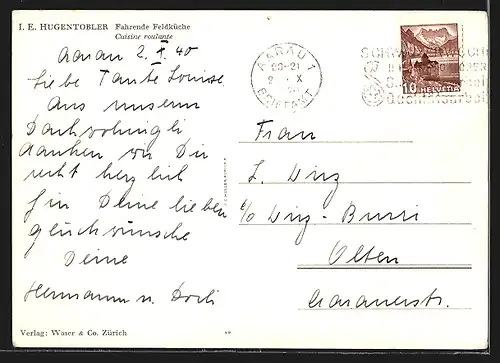 I. E. HUGENTOBLER Fahrende Feldküche
Cuisine roulante
Aarau 2. X 40
Liebe Tante Louise
Aus unserm
Dachwohnigli
danken wir Dir
recht herzlich
für Deine lieben
glückwünsche
Deine
Hermann u. Dorli
Verlag: Waser & Co. Zürich
AARAU 1
20-21
2. X
BRIEFAMT
10 HELVETIA
Frau
L. Wirz
c/o Wirz-Burri
Olten
Aarauerstr.